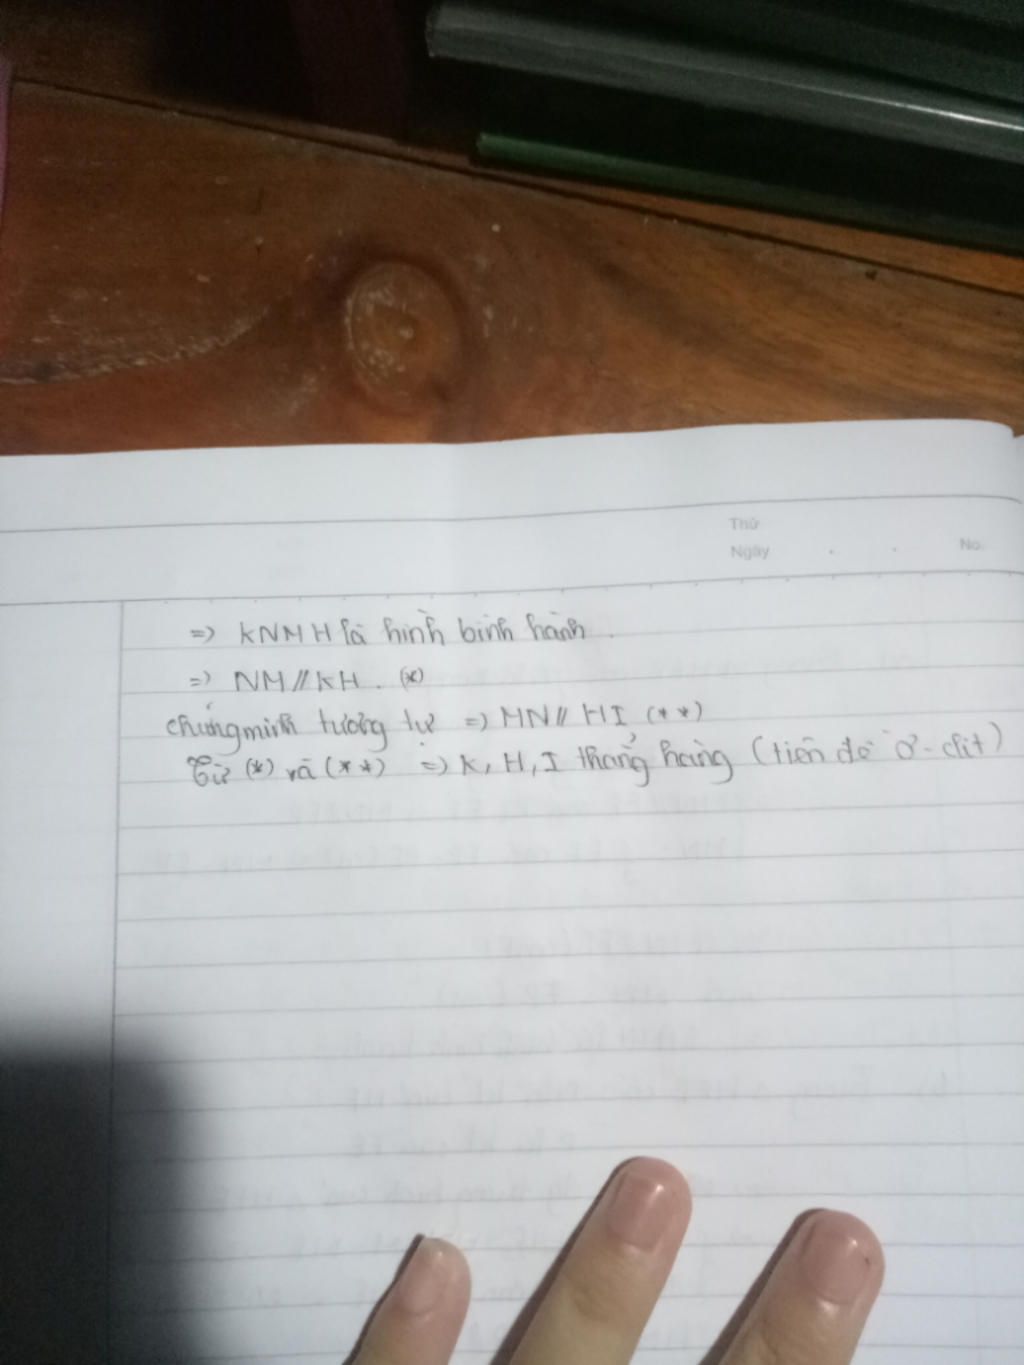 Thứ
Ngày . . No.
=> KNMH là hình bình hành.
=> NM // KH. (*)
chứng minh tương tự => MN // HI (**)
Từ (*) và (**) => K, H, I thẳng hàng (tiên đề Ơ-clit)